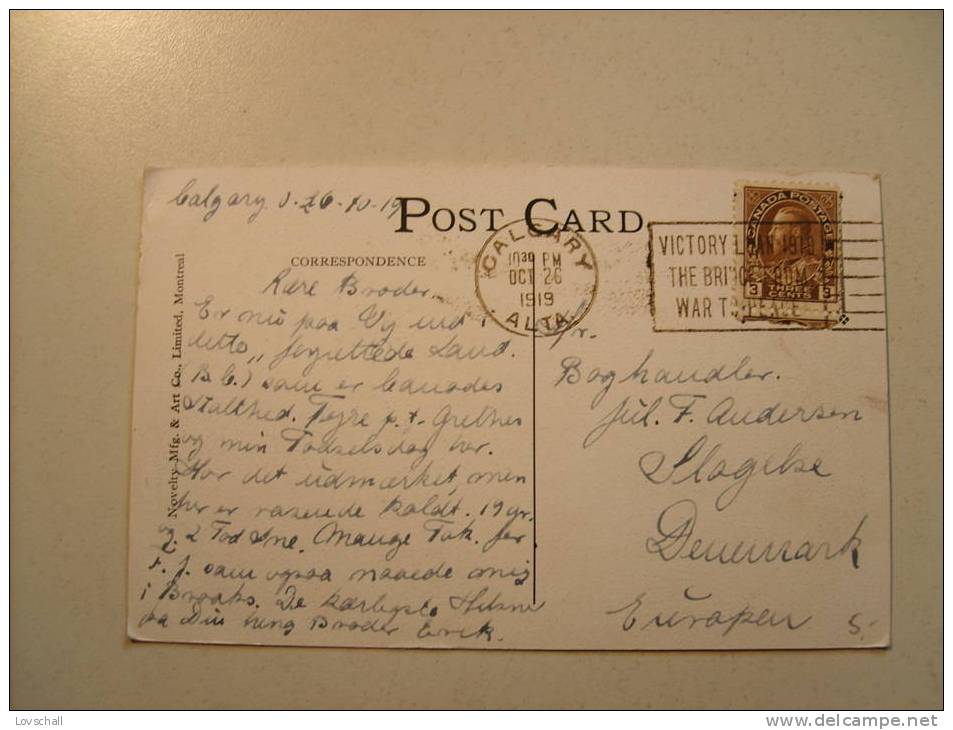 Calgary d. 26-10-19
POST CARD
CORRESPONDENCE
Novelty Mfg. & Art Co., Limited, Montreal
CALGARY
10 30 PM
OCT 26
1919
ALTA.
VICTORY LOAN 1919
THE BRIDGE FROM
WAR TO PEACE
CANADA POSTAGE
3 THREE CENTS 3
Kære Broder.
Er nu paa Vej ind i
dette „forjættede Land.
(B.C.) som er Canadas
og min Fødselsdag her.
Har det udmærket, men
her er rasende koldt. 19 gr.
og 2 Fod Sne. Mange Tak for
som ogsaa naaede mig
i Brooks. De kærligste Hilsner
fra Din heng Broder Erik.
Hr.
Boghandler.
Jul. F. Andersen
Slagelse
Denemark
Europen
5.-
Lovschall
www.delcampe.net